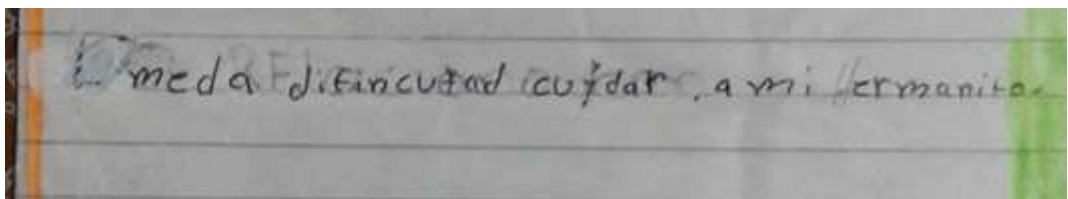 meda difincutad cuydar a mi ermanito.